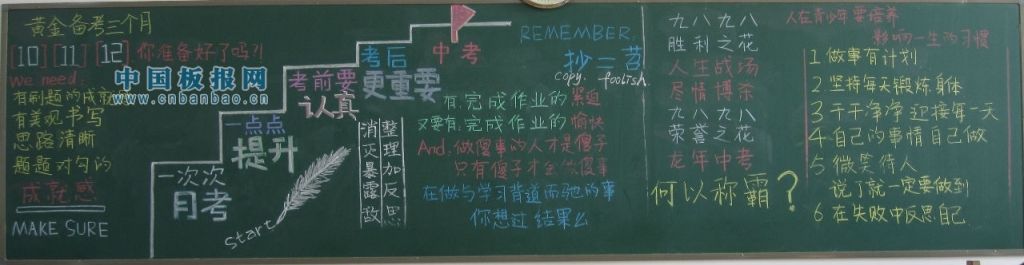 黄金备考三个月
10 11 12 你准备好了吗?!
we need:
中国板报网
www.cnbanbao.cn
有刷题的成就感
有美观书写
思路清晰
题题对勾的
成就感
MAKE SURE
一次次
月考
一点点
提升
考前要
认真
考后
更重要
中考
start
消灭暴露敌
整理加反思
REMEMBER:
抄=苕
copy. foolish.
有完成作业的紧迫
又要有完成作业的愉快
And,做傻事的人才是傻子
只有傻子才会做傻事
在做与学习背道而驰的事
你想过结果么
九八九八
胜利之花
人生战场
尽情博茶
九八九八
荣誉之花
龙年中考
何以称霸?
人在青少年要培养
影响一生的习惯
1 做事有计划
2 坚持每天锻炼身体
3 干干净净迎接每一天
4 自己的事情自己做
5 微笑待人
说了就一定要做到
6 在失败中反思自己